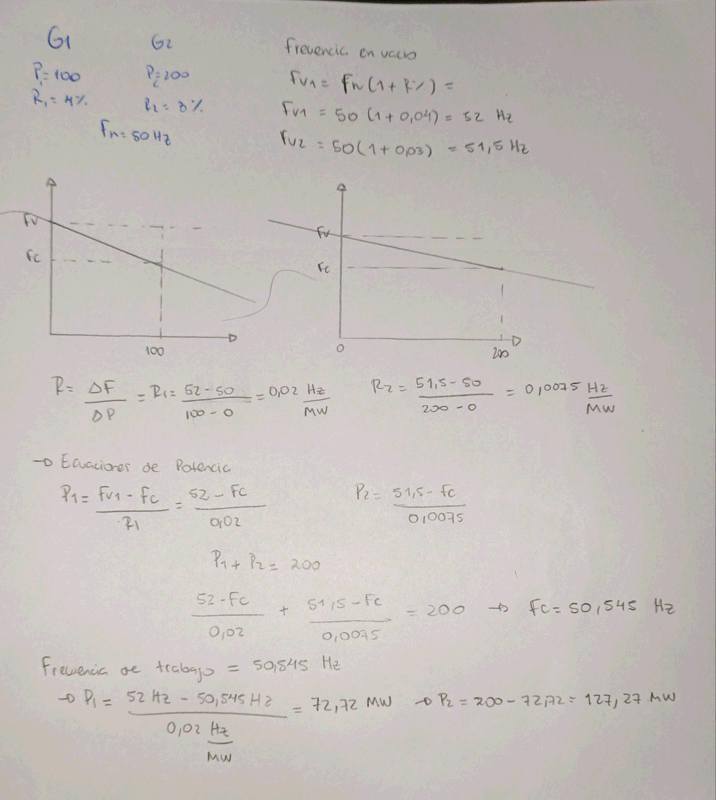 G1 G2
P1=100 P2=200
R1=4% R2=3%
Fn=50Hz
Frecuencia en vacio
Fv1 = Fn(1+R%) =
Fv1 = 50 (1+0,04) = 52 Hz
Fv2 = 50(1+0,03) = 51,5 Hz
Fv
Fc
100
Fv
Fc
0
200
R= ΔF/ΔP = R1= 52-50/100-0 = 0,02 Hz/MW
R2= 51,5-50/200-0 = 0,0075 Hz/MW
→ Ecuaciones de Potencia
P1= Fv1-Fc/R1 = 52-Fc/0,02
P2= 51,5-Fc/0,0075
P1+P2=200
52-Fc/0,02 + 51,5-Fc/0,0075 = 200 → Fc=50,545 Hz
Frecuencia de trabajo = 50,545 Hz
→ P1= 52 Hz - 50,545 Hz/0,02 Hz/MW = 72,72 MW → P2=200-72,72= 127,27 MW